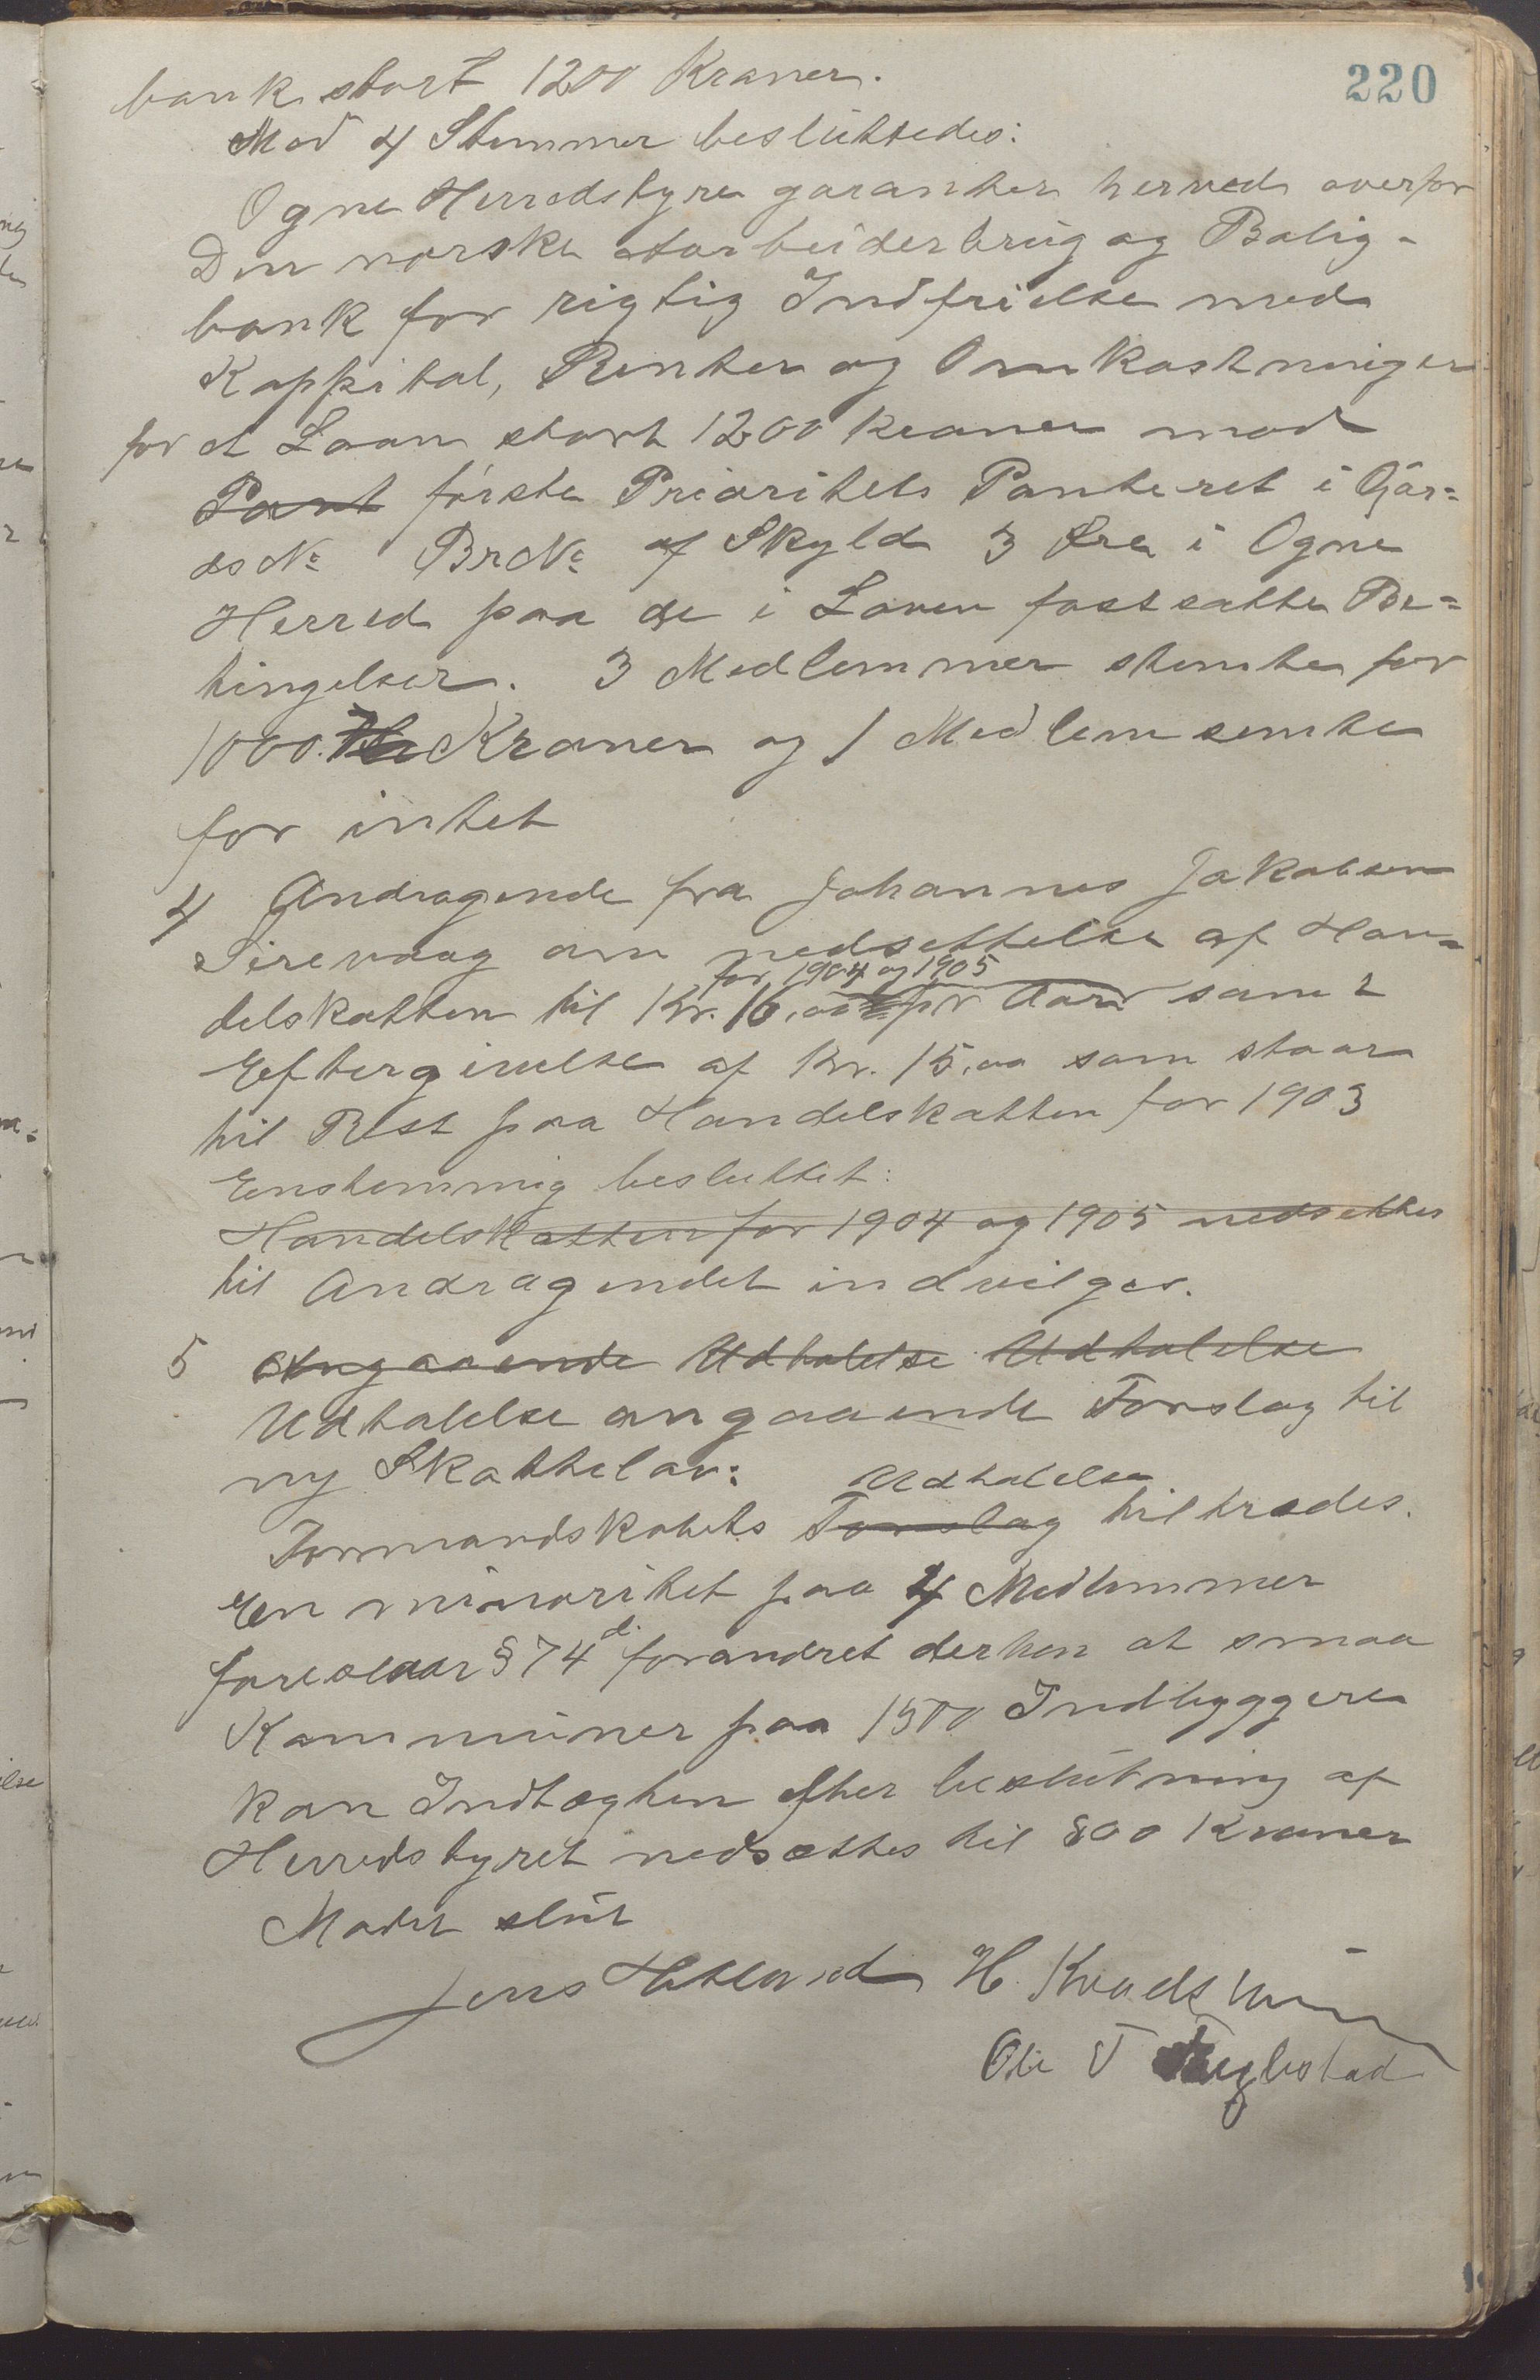 220
bank stort 1200 Kroner.
Mod 4 Stemmer besluttedes:
Ogne Herredstyre garanter herved overfor
Den norske Arbeiderbrug og Bolig-
bank for rigtig Indfrielse med
Kappital, Renter og Omkostninger
for et Laan stort 1200 kroner mod
Pant første Prioritets Panteret i Går=
ds No BrNo af Skyld 3 Øre i Ogne
Herred paa de i Loven fastsatte Be=
tingelser. 3 Medlemmer stemte for
1000. Kroner og 1 Medlem semte
for intet
4 Andragende fra Johannes Jakobsen
Sirevaag om nedsettelse af Han=
for 1904 og 1905
delskatten til Kr. 16,00 pr Aar samt
Eftergivelse af Kr. 15,00 som staar
til Rest paa Handelskatten for 1903
Enstemmig besluttet:
Handelskatten for 1904 og 1905 nedsettes
til Andragendet indvilges.
5 Angaaende Udtalelse Udtalelse
Udtalelse angaaende Forslag til
ny Skattelov:
Udtalelse
Formandskabets Forslag tiltrædes.
En minoritet paa 4 Medlemmer
foreslaar § 74 d. forandret derhen at smaa
Kommuner paa 1500 Indbyggere
kan Indtægten efter beslutning af
Herredstyret nedsættes til 800 Kroner
Mødet slut
Jens Hetland H. Kvadsheim
Ole T Fuglestad